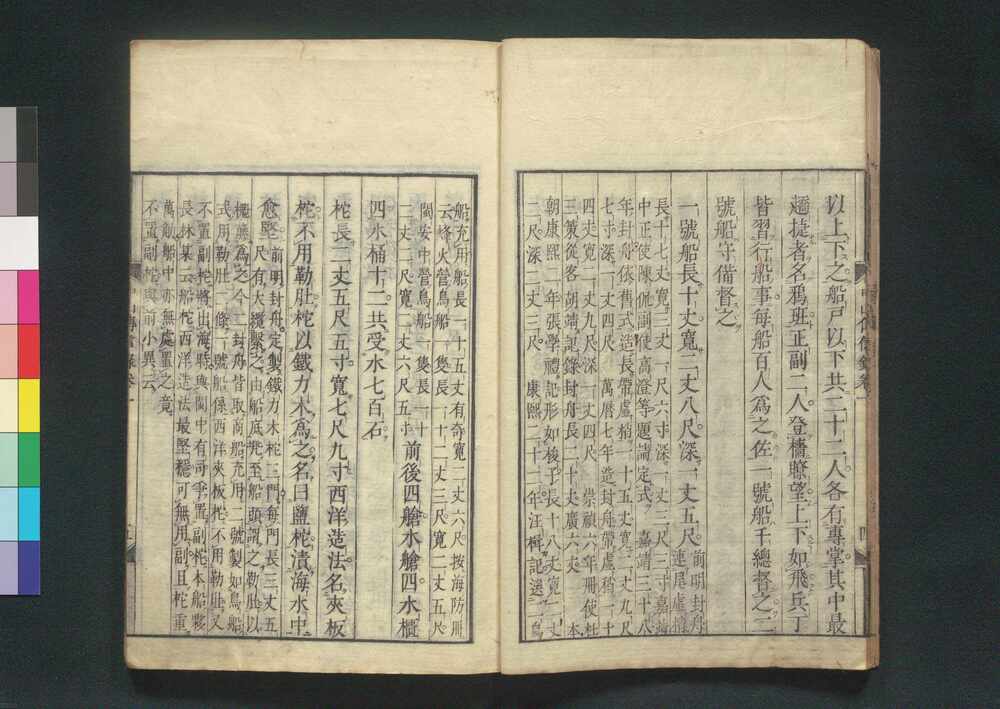 以上下之船戶以下共二十二人各有專掌其中最
趫捷者名鴉班正副二人登檣瞭望上下如飛兵丁
皆習行船事每船百人爲之佐一號船千總督之二
號船守備督之
一號船長十丈寬二丈八尺深一丈五尺
前明封舟連尾虛梢
長十七丈寬三丈一尺六寸深一丈三尺三寸嘉靖
中正使陳侃副使高澄等題請定式 嘉靖三十八
年封舟依舊式造長帶虛梢一十五丈寬二丈九尺
七寸深一丈四尺 萬曆七年造封舟帶虛梢一十
四丈寬二丈九尺深一丈四尺 崇禎六年冊使杜
三策從客胡靖記錄封舟長二十丈廣六丈 本
朝康熙二年張學禮記形如梭子長十八丈寬二丈
二尺深二丈三尺 康熙二十二年汪楫記選二鳥
船充用船長一十五丈有奇寬二丈六尺按海防冊
云烽火營鳥船一隻長一十二丈三尺寬二丈五尺
閩安中營鳥船一隻長一十
二丈二尺寬二丈六尺五寸
前後四艙水艙四水櫃
四水桶十二共受水七百石
柁長二丈五尺五寸寬七尺九寸西洋造法名夾板
柁不用勒肚柁以鐵力木爲之名曰鹽柁漬海水中
愈堅
前明封舟定製鐵力木柁三門每門長三丈五
尺有大纜繫之由船底兜至船頭謂之勒肚以
櫓藤爲之今二封舟皆取商船充用二號製如鳥船
式用勒肚二條一號船係西洋夾板柁不用勒肚又
不置副柁將出海時與閩中有司爭置副柁本船夥
長林某云船柁西洋造法最堅穩可無用副且柁重
萬觔船中亦無處置之竟
不置副柁與前小異云